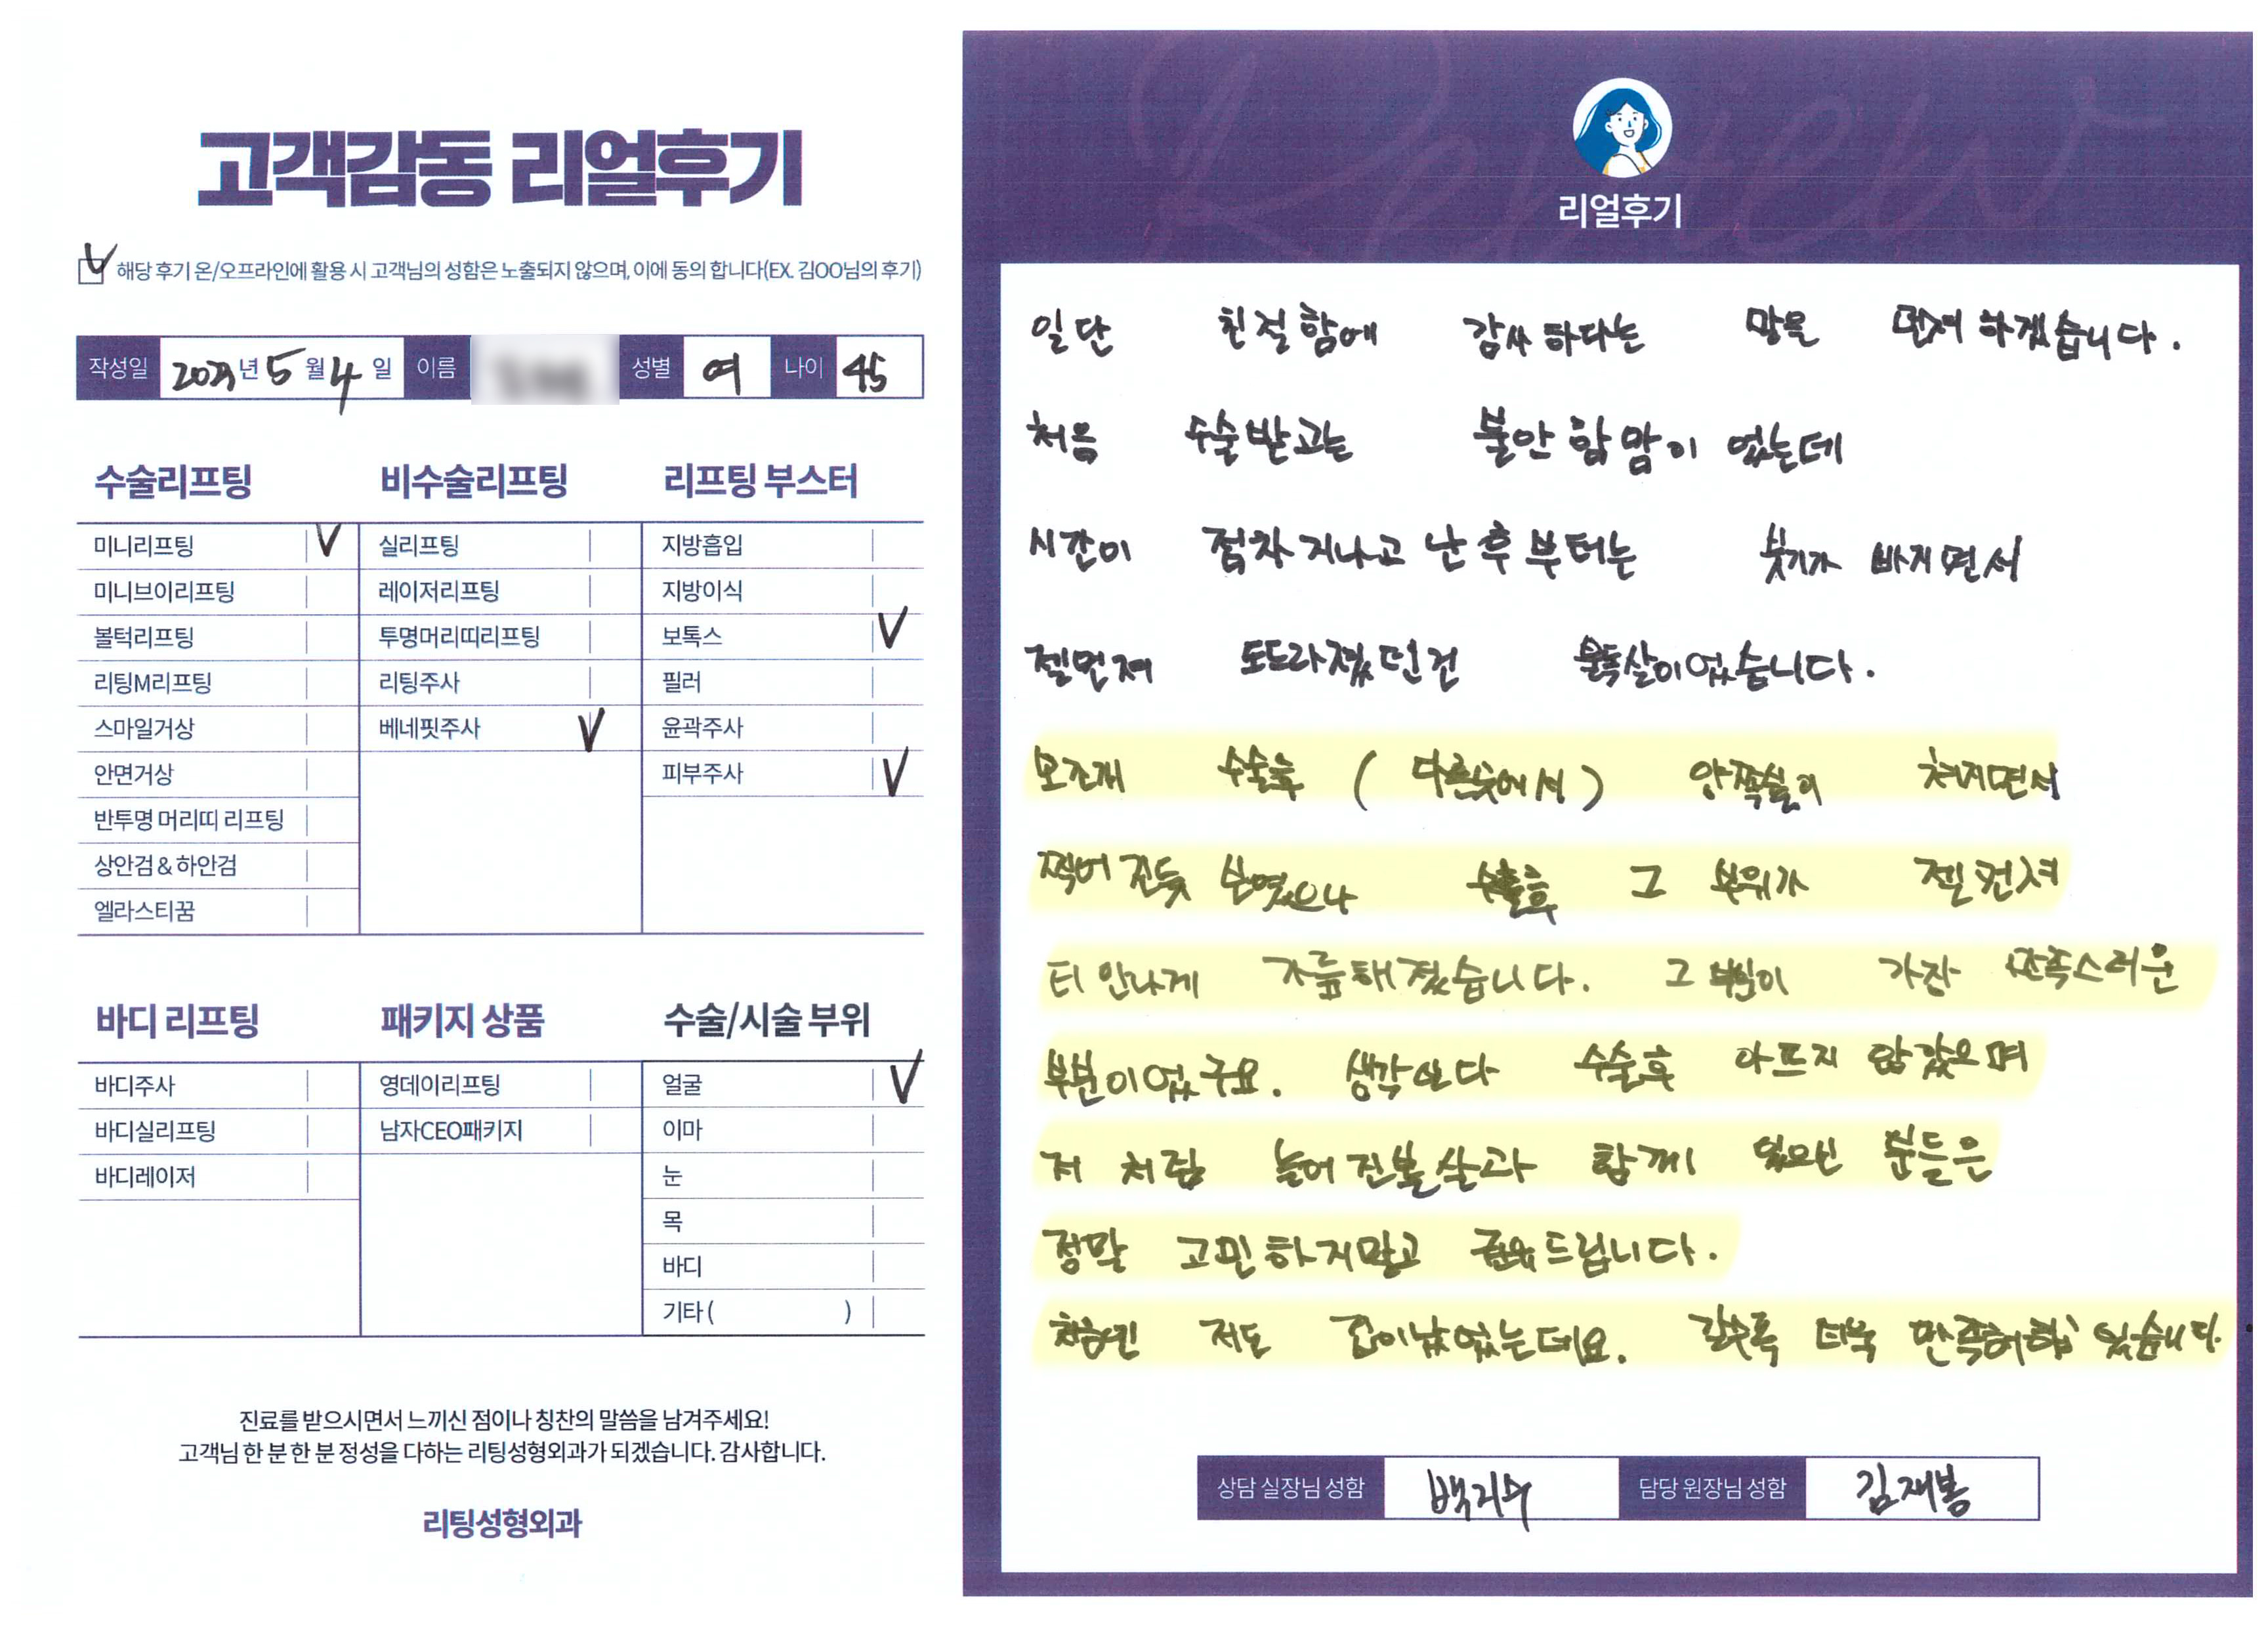 고객감동 리얼후기
해당 후기 온/오프라인에 활용 시 고객님의 성함은 노출되지 않으며, 이에 동의 합니다(EX. 김OO님의 후기)
작성일 년 5 월 4 일 이름 성별 여 나이 45
수술리프팅
미니리프팅 V
미니브이리프팅
볼턱리프팅
리팅M리프팅
스마일거상
안면거상
반투명 머리띠 리프팅
상안검 & 하안검
엘라스티꿈
비수술리프팅
실리프팅
레이저리프팅
투명머리띠리프팅
리팅주사
베네핏주사 V
리프팅 부스터
지방흡입
지방이식
보톡스 V
필러
윤곽주사
피부주사 V
바디 리프팅
바디주사
바디실리프팅
바디레이저
패키지 상품
영데이리프팅
남자CEO패키지
수술/시술 부위
얼굴 V
이마
눈
목
바디
기타 ( )
진료를 받으시면서 느끼신 점이나 칭찬의 말씀을 남겨주세요!
고객님 한 분 한 분 정성을 다하는 리팅성형외과가 되겠습니다. 감사합니다.
리팅성형외과
Review
리얼후기
일단 친절함에 감사하다는 말을 먼저 하겠습니다.
처음 수술받고는 불안함맘이 었는데
시간이 점차 지나고 난 후 부터는 붓기가 빠지면서
젤먼져 도드라졌던건 이었습니다.
수술후 (다른곳에서) 양쪽살이 쳐지면서
수술후 그 부위가
티 안나게 갸름해졌습니다. 그 부분이 가장 만족스러운
부분이었구요. 생각보다 수술후 아프지 않았으며
저 처럼 늘어진볼살과 함께 분들은
정말 고민하지말고 권유드립니다.
저도 겁이났었는데요. 갈수록 더욱 있습니다
상담 실장님 성함 백지수 담당 원장님 성함 김재봉